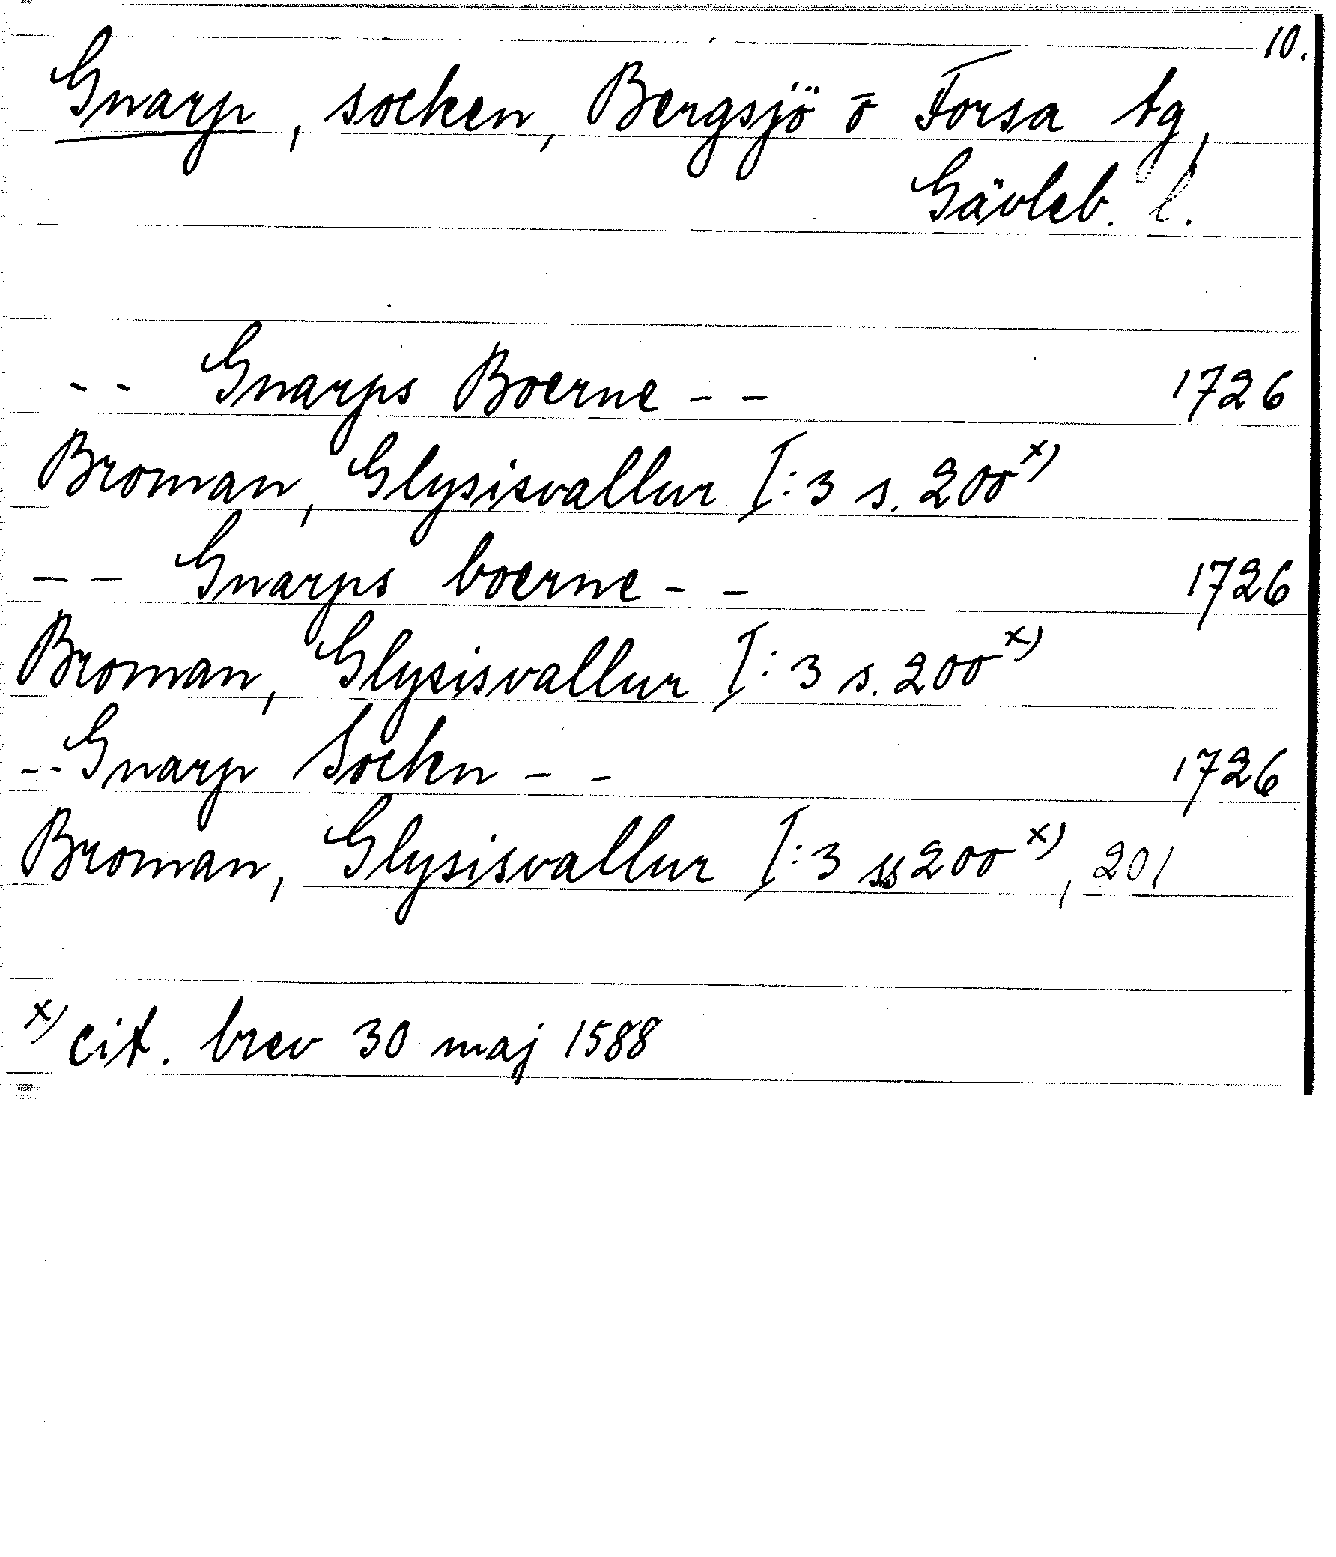 10.
Gnarp, socken, Bergsjö o Forsa tg,
Gävleb. l.
-- Gnarps Boerne --
1726
Broman, Glysisvallur I:3 s. 200x)
-- Gnarps boerne --
1726
Broman, Glysisvallur I:3 s. 200x)
-- Gnarp Sockn --
1726
Broman, Glysisvallur I:3 ss 200x), 201
x) cit. brev 30 maj 1588